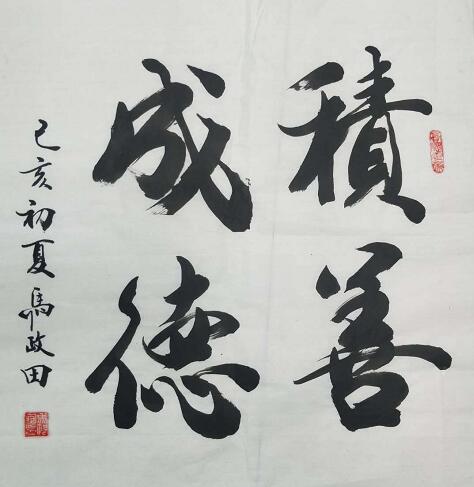 積善
成德
己亥初夏馬政田